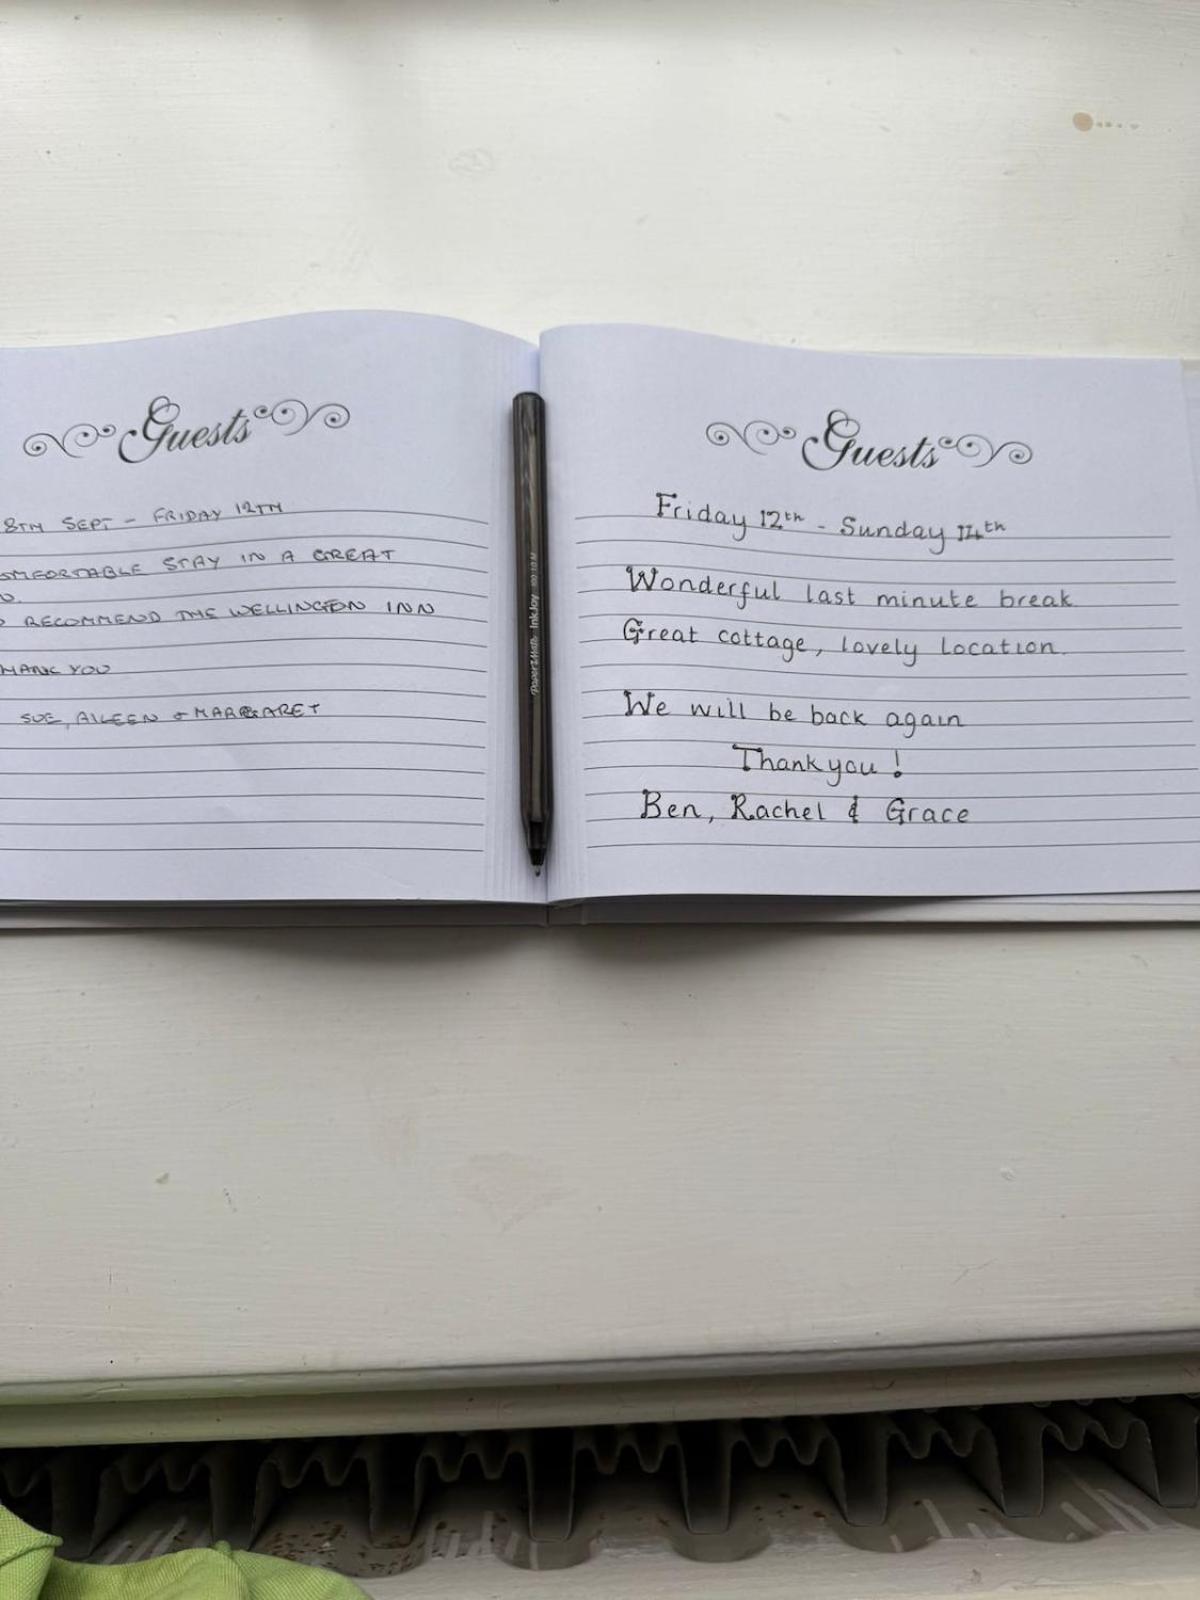 Guests
8TH SEPT - FRIDAY 12TH
STAY IN A GREAT
RECOMMEND THE WELLINGTON INN
YOU
SUE, AILEEN & MARGARET
PaperMate InkJoy 100 1.0 M
Guests
Friday 12th - Sunday 14th
Wonderful last minute break
Great cottage, lovely location.
We will be back again
Thank you !
Ben, Rachel & Grace